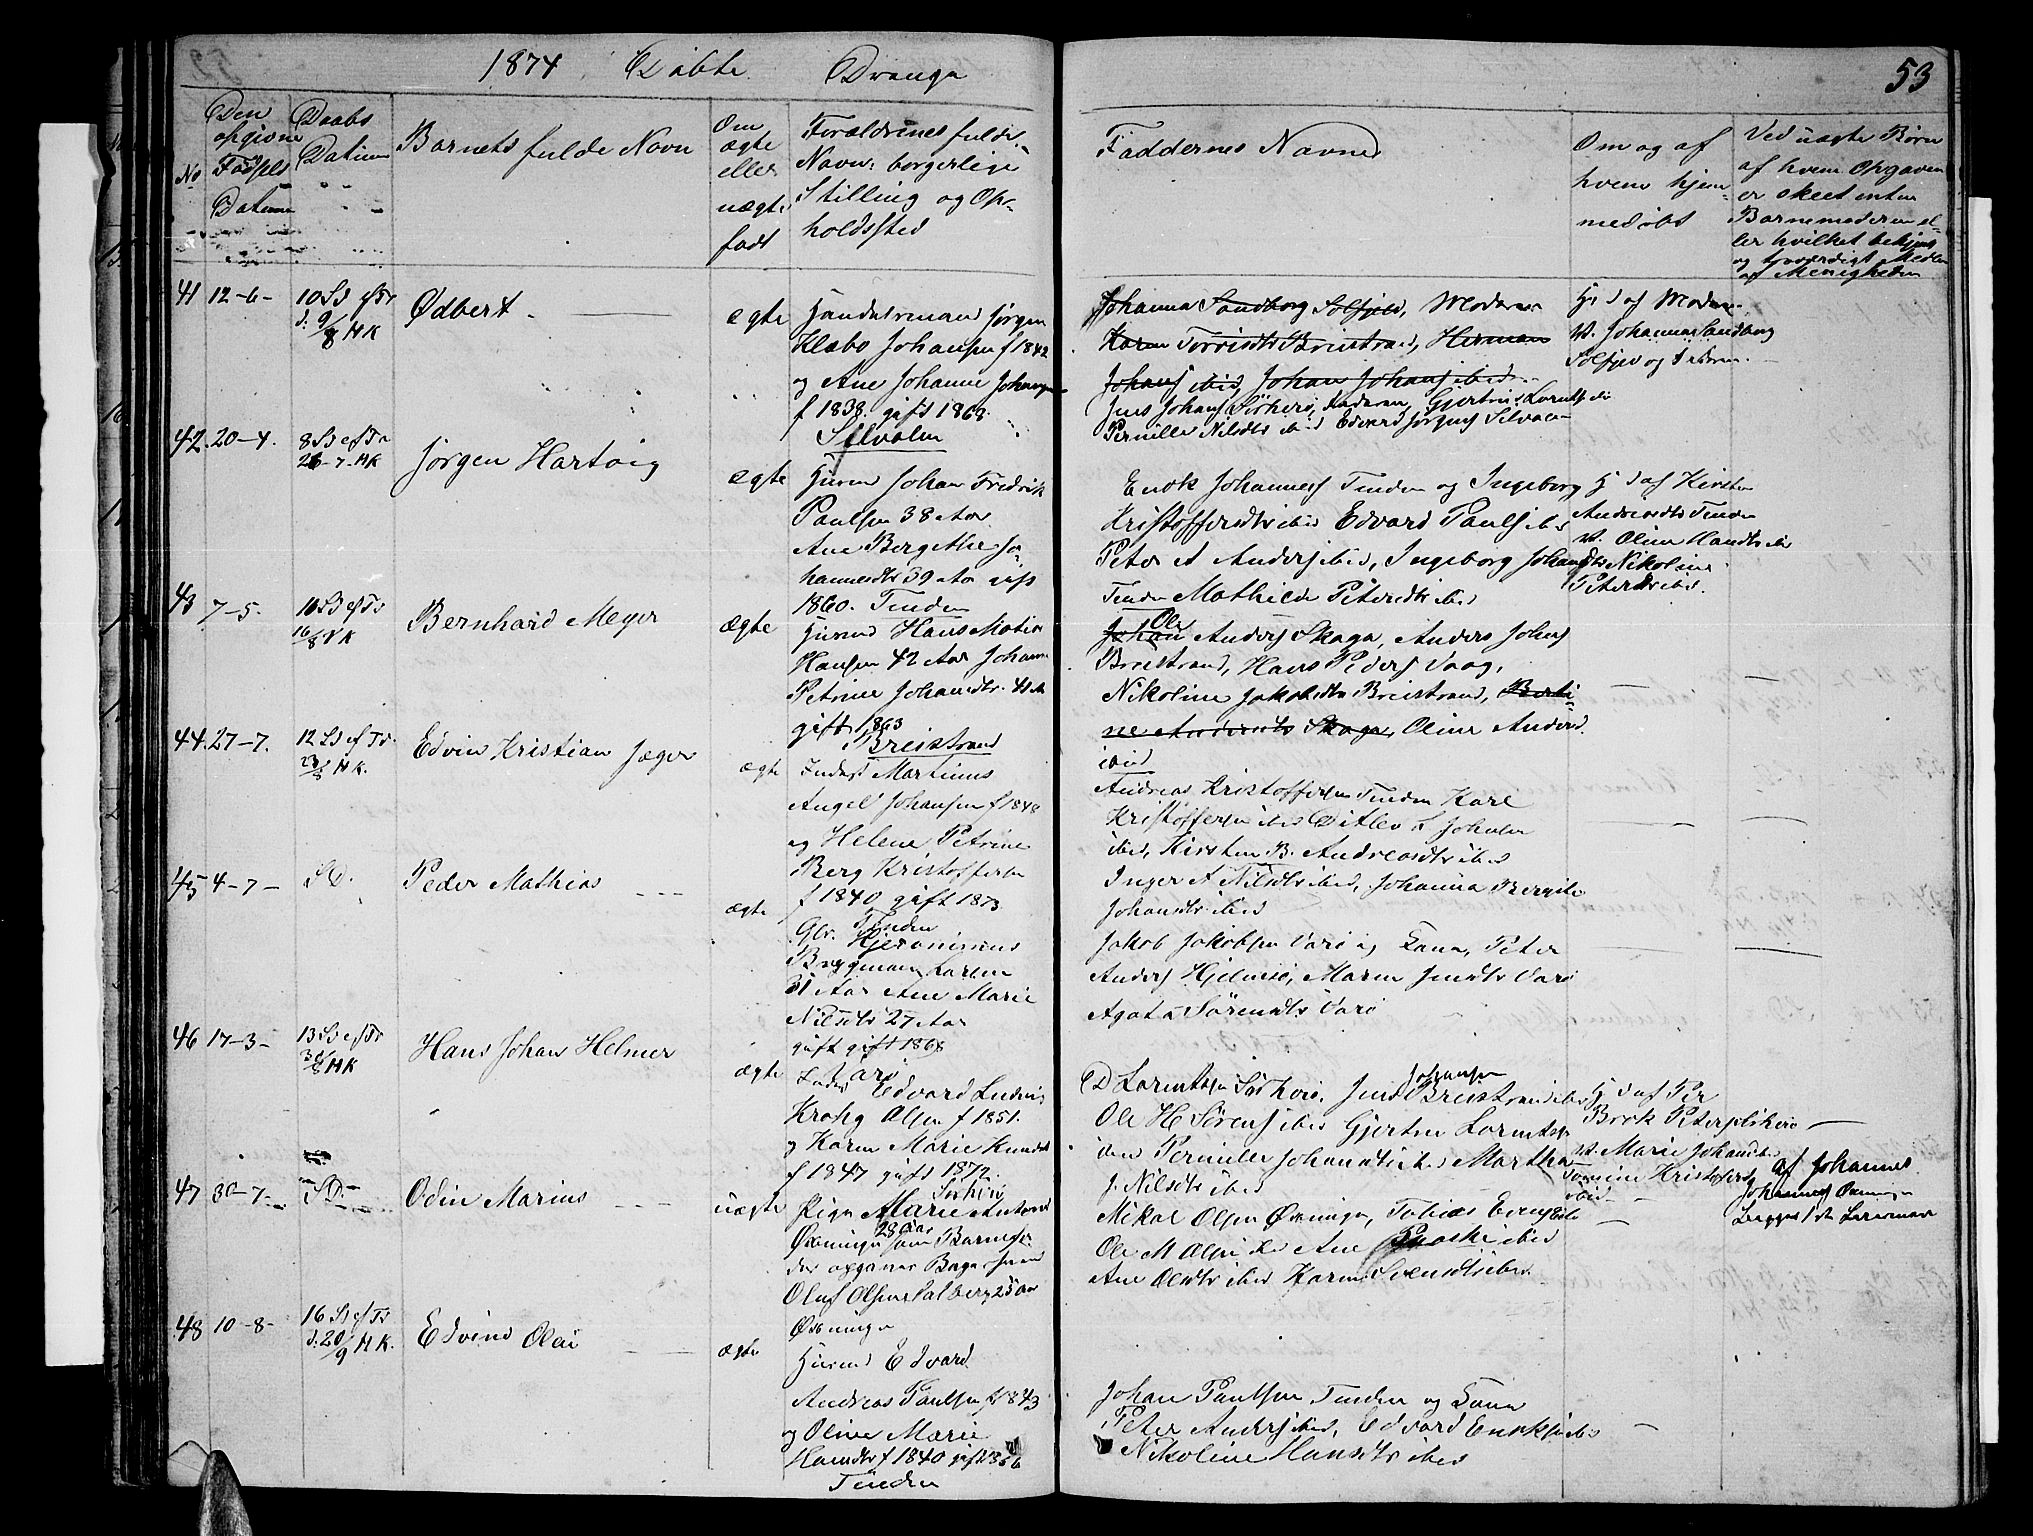 1874 Døbte Drenge
53
No
Den
opgivne
Fødsels
Datum
Daabs
Datum
Barnets fulde Navn
Om
ægte
eller
uægte
født
Forældrenes fulde
Navn, borgerlige
Stilling og Op-
holdssted
Faddernes Navne
Om og af
hvem hjem-
medøbt
Ved uægte Børn
af hvem Opgaven
er skeet enten
Barnemoderen el-
ler hvilket bekjendt
og troværdigt Medlem
af Menigheden
41 12-6-
10 S d ef Tr
d. 9/8 HK
Ødbert
ægte
Handelsmand Jørgen
Klæbo Johansen f 1842
og Ane Johanne Johansen
f 1838 gift 1868
Selvolm
Johanna Sandberg Solfjeld, Moderen
Karen Torrisdtr Breistrand, Herman
Johans ibid, Johan Johans ibid
Jens Johans Sørherø, Faderen, Gjertrud Lorents ibid
Pernille Nilsdtr ibid Edvard Jørgens Selvolm
Hj d af Moderen
v. Johanna Sandberg
Solfjeld og Faderen
42. 20-4.
8 S d ef Tr
26-7. HK
Jørgen Hartvig
ægte
Husmd Johan Fredrik
Paulsen 38 Aar
Ane Bergithe Jo-
hannesdtr 39 Aar gift
1860. Tinden
Enok Johannes Tinden og Ingeborg
Kristoffersdtr ibid Edvard Pauls ibid
Peter A Anders ibid, Ingeborg Johansdtr
Tinden Mathilde Petersdtr ibid
Hj d af Kirsten
Andreasdtr Tinden
v. Oline Hansdtr ibid
Nikoline
Petersdtr ibid.
43 7-5.
11 S d ef Tr
16/8 HK
Bernhard Meyer
ægte
Husmd Hans Mathias
Hansen 42 Aar Johanne
Petrine Johansdtr. 41 A
gift 1863
Breistrand
Ole
Johan Anders Skaga, Anders Johns
Breistrand, Hans Peders Vaag,
Nikoline Jakobsdtr Breistrand, Berti-
ne Andersdtr Skaga, Oline Andersd
ibid
44. 27-7.
12 S d ef Tr.
23/8 HK.
Edvin Kristian Jæger
ægte
Inderst Martinus
Angel Johansen f 1848
og Helene Petrine
Berg Kristoffersen
f 1840 gift 1873
Tinden
Andreas Kristoffersen Tinden Karl
Kristoffersen ibid Ditlev S Johnsen
ibid, Kirsten B. Andreasdtr ibid
Inger A Nilsdtr ibid, Johanna Bergite
Johansdtr ibid
45 4-7-
S D.
Peder Mathias
ægte
Gbr. Hjeronimus
Brygmann Larsen
31 Aar Ane Marie
Nilsdtr 27 Aar
gift gift 1868
Varø
Jakob Jakobsen Varø og Kone, Peter
Anders Hjelmsø, Maren Jensdtr Varø
Agata Sørensdtr Varø
46 17-3-
13 S d ef Tr
30/8 HK
Hans Johan Helmer
ægte
Inderst Edvard Ludvig
Krohg Olsen f 1851.
og Karen Marie Knudsdtr
f 1847 gift 1872.
Sørherø
D Lorentsen Sørherø, Jens Johansen Breistrand ibid
Ole H Sørens ibid Gjertru Lorentsen
ibid Pernille Johansdtr ibid Martha
J. Nilsdtr ibid
Hj d af Per
Brok Petersen Sørherø
v. Marie Johansdtr
Tomine Kristoffersd
ibid
47 30-7-
S D.
Odin Marius
uægte
Pige Marie Antonsd
Øxninga 28 Aar som Barnefa-
der opgiver Bagersvend
Oluf Olsen Salberg 25 Aar
Øxninga
Mikal Olsen Øxninga, Tobias Evensen
Ole M Olsen ibid Ane ibid
Ane Olsdtr ibid Karen Svensdtr ibid.
af Johannes
Johannes Øxninga
48 10-8-
16 S d ef Tr
d. 20/9 HK.
Edvind Olai
ægte
Husmd Edvard
Andreas Paulsen f 1843
og Oline Marie
Hansdtr f 1840 gift 1866
Tinden
Johan Paulsen Tinden og Kone
Peter Anders ibid, Edvard Enoks ibid
Nikoline Hansdtr ibid